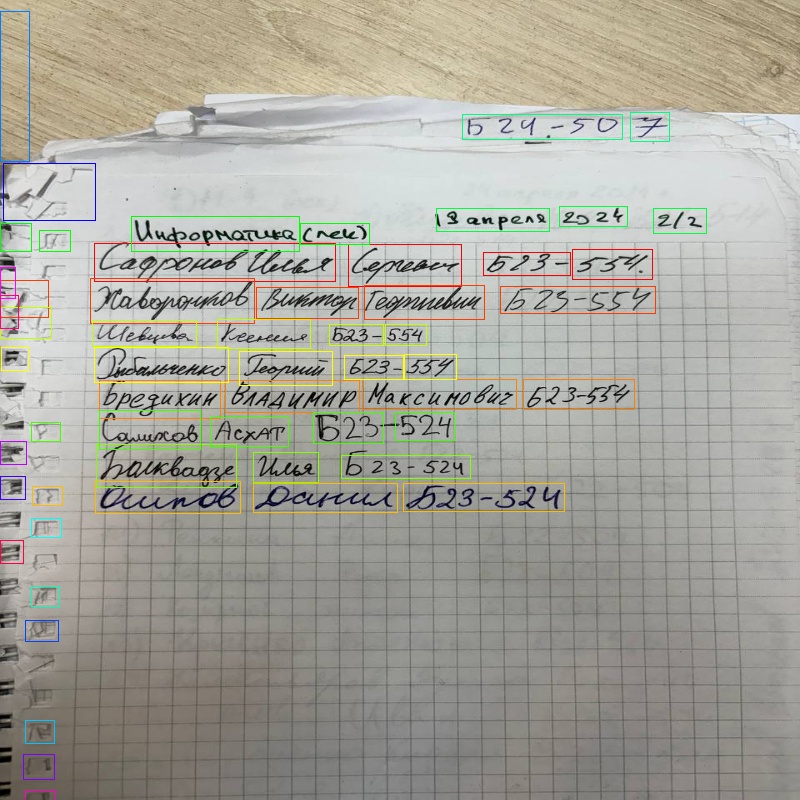 Б24-507
13 апреля 2024 2/2
Информатика (лек)
Сафронов Илья Сергеевич Б23-554.
Жаворонков Виктор Георгиевич Б23-554
Шевцова Ксения Б23-554
Рыбальченко Георгий Б23-554
Бредихин Владимир Максимович Б23-554
Салихов Асхат Б23-524
Болквадзе Илья Б23-524
Осипов Данил Б23-524